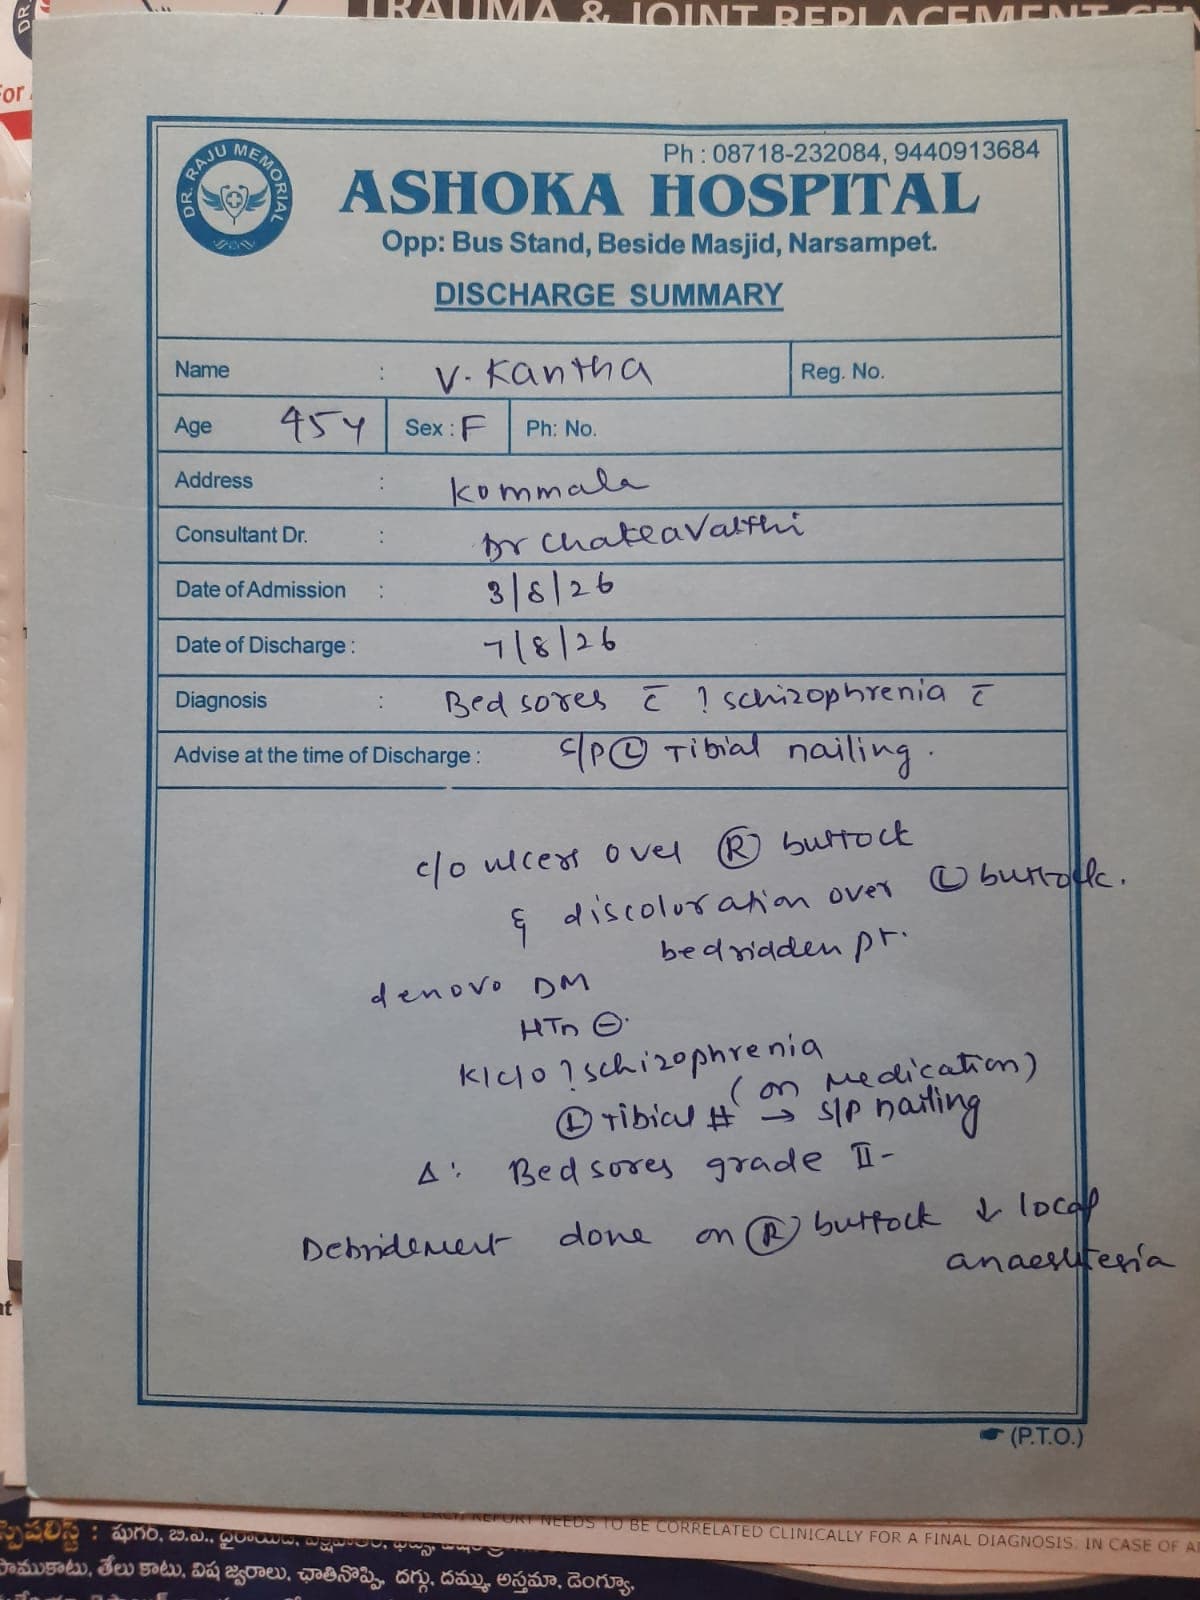 TRAUMA & JOINT REPLACEMENT CEN
DR.
For
DR. RAJU MEMORIAL
Ph : 08718-232084, 9440913684
ASHOKA HOSPITAL
Opp: Bus Stand, Beside Masjid, Narsampet.
DISCHARGE SUMMARY
Name : V. Kantha Reg. No.
Age 45y Sex : F Ph: No.
Address : Kommala
Consultant Dr. : Dr Chakravarthi
Date of Admission : 3/8/26
Date of Discharge : 7/8/26
Diagnosis : Bed sores c̄ ? schizophrenia c̄
Advise at the time of Discharge : S/P Ⓛ Tibial nailing.
c/o ulcers over Ⓡ buttock
& discoloration over Ⓛ buttock.
bedridden pt.
denovo DM
HTn ⊖
K/c/o ? schizophrenia
(on Medication)
Ⓛ Tibial # → S/P nailing
Δ: Bed sores grade II-
Debridement done on Ⓡ buttock ↓ local
anaesthesia
☛ (P.T.O.)
REPORT NEEDS TO BE CORRELATED CLINICALLY FOR A FINAL DIAGNOSIS. IN CASE OF
స్పెషలిస్ట్ : షుగర్, బి.పి., థైరాయిడ్,
పాముకాటు, తేలు కాటు, విష జ్వరాలు, ఛాతినొప్పి, దగ్గు, దమ్ము, అస్తమా, డెంగ్యూ,